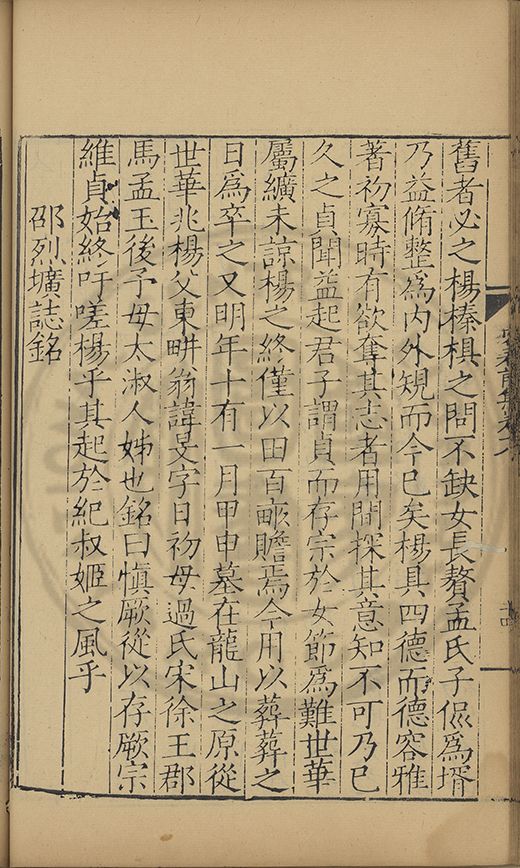 舊者必之楊榛椇之問不缺女長贅孟氏子伒為壻
乃益脩整為內外規而今已矣楊具四德而德容雅
著初寡時有欲奪其志者用間探其意知不可乃已
久之貞聞益起君子謂貞而存宗於女節為難世華
屬纊未諒楊之終僅以田百畝贍焉今用以葬葬之
日為卒之又明年十有一月甲申墓在龍山之原從
世華兆楊父東畊翁諱旻字日初母過氏宋徐王郡
馬孟王後予母太淑人姊也銘曰慎厥從以存厥宗
維貞始終吁嗟楊乎其起於紀叔姬之風乎
邵烈壙誌銘